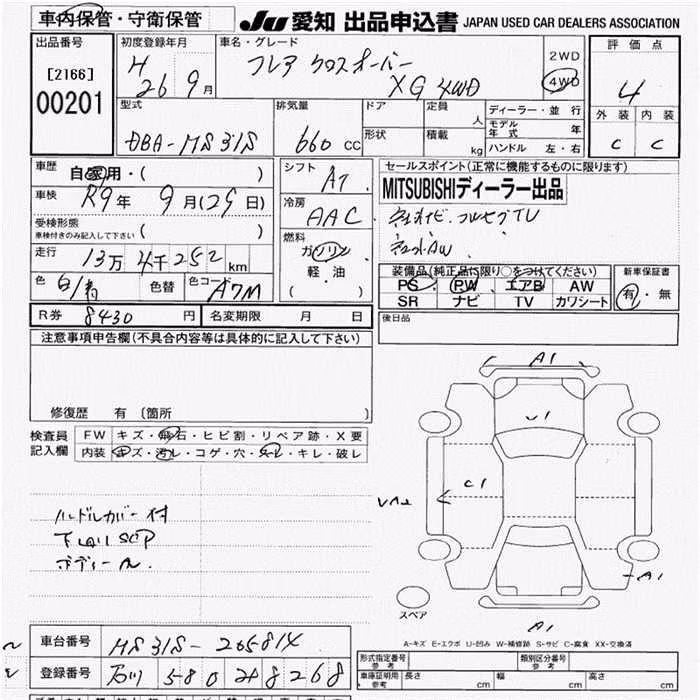 車内保管・守衛保管
JU 愛知 出品申込書 JAPAN USED CAR DEALERS ASSOCIATION
出品番号
[2166]
00201
初度登録年月
H 26年 9月
車名・グレード
フレア クロスオーバー
XG 4WD
2WD
4WD
評価点
4
外装 内装
C C
型式
DBA-MS31S
排気量
660 CC
ドア
形状
定員 人
積載 kg
ディーラー・並行
モデル年式 年
ハンドル 左・右
車歴
自家用・( )
車検
R9年 9月(29日)
受検形態
車検付きのみ記入して下さい ( )
走行
13万4千252km
色 白/青 色替 色コード A7M
シフト
AT
冷房
AAC
燃料
ガソリン
軽・油
( )
セールスポイント(正常に機能するものに限ります)
MITSUBISHIディーラー出品
装備品(純正品に限り○をつけてください)
PS PW エアB AW
SR ナビ TV カワシート
新車保証書
有・無
R券 8430円 名変期限 月 日
後日品
注意事項申告欄(不具合内容等は具体的に記入して下さい)
修復歴 有 〔箇所 〕
検査員記入欄
FW キズ・飛石・ヒビ割・リペア跡・X要
内装 キズ・汚レ・コゲ・穴・スレ・キレ・破レ
ハンドルカバー付
A1
U1
C1
A1
A1
スペア
A-キズ E-エクボ U-凹み W-補修跡 S-サビ C-腐食 XX-交換済
車台番号 MS31S-265814
登録番号 石川 580 す 8268
形式指定番号 参考
類別区分番号 参考
車庫証明用 参考 長さ cm 幅 cm 高さ cm